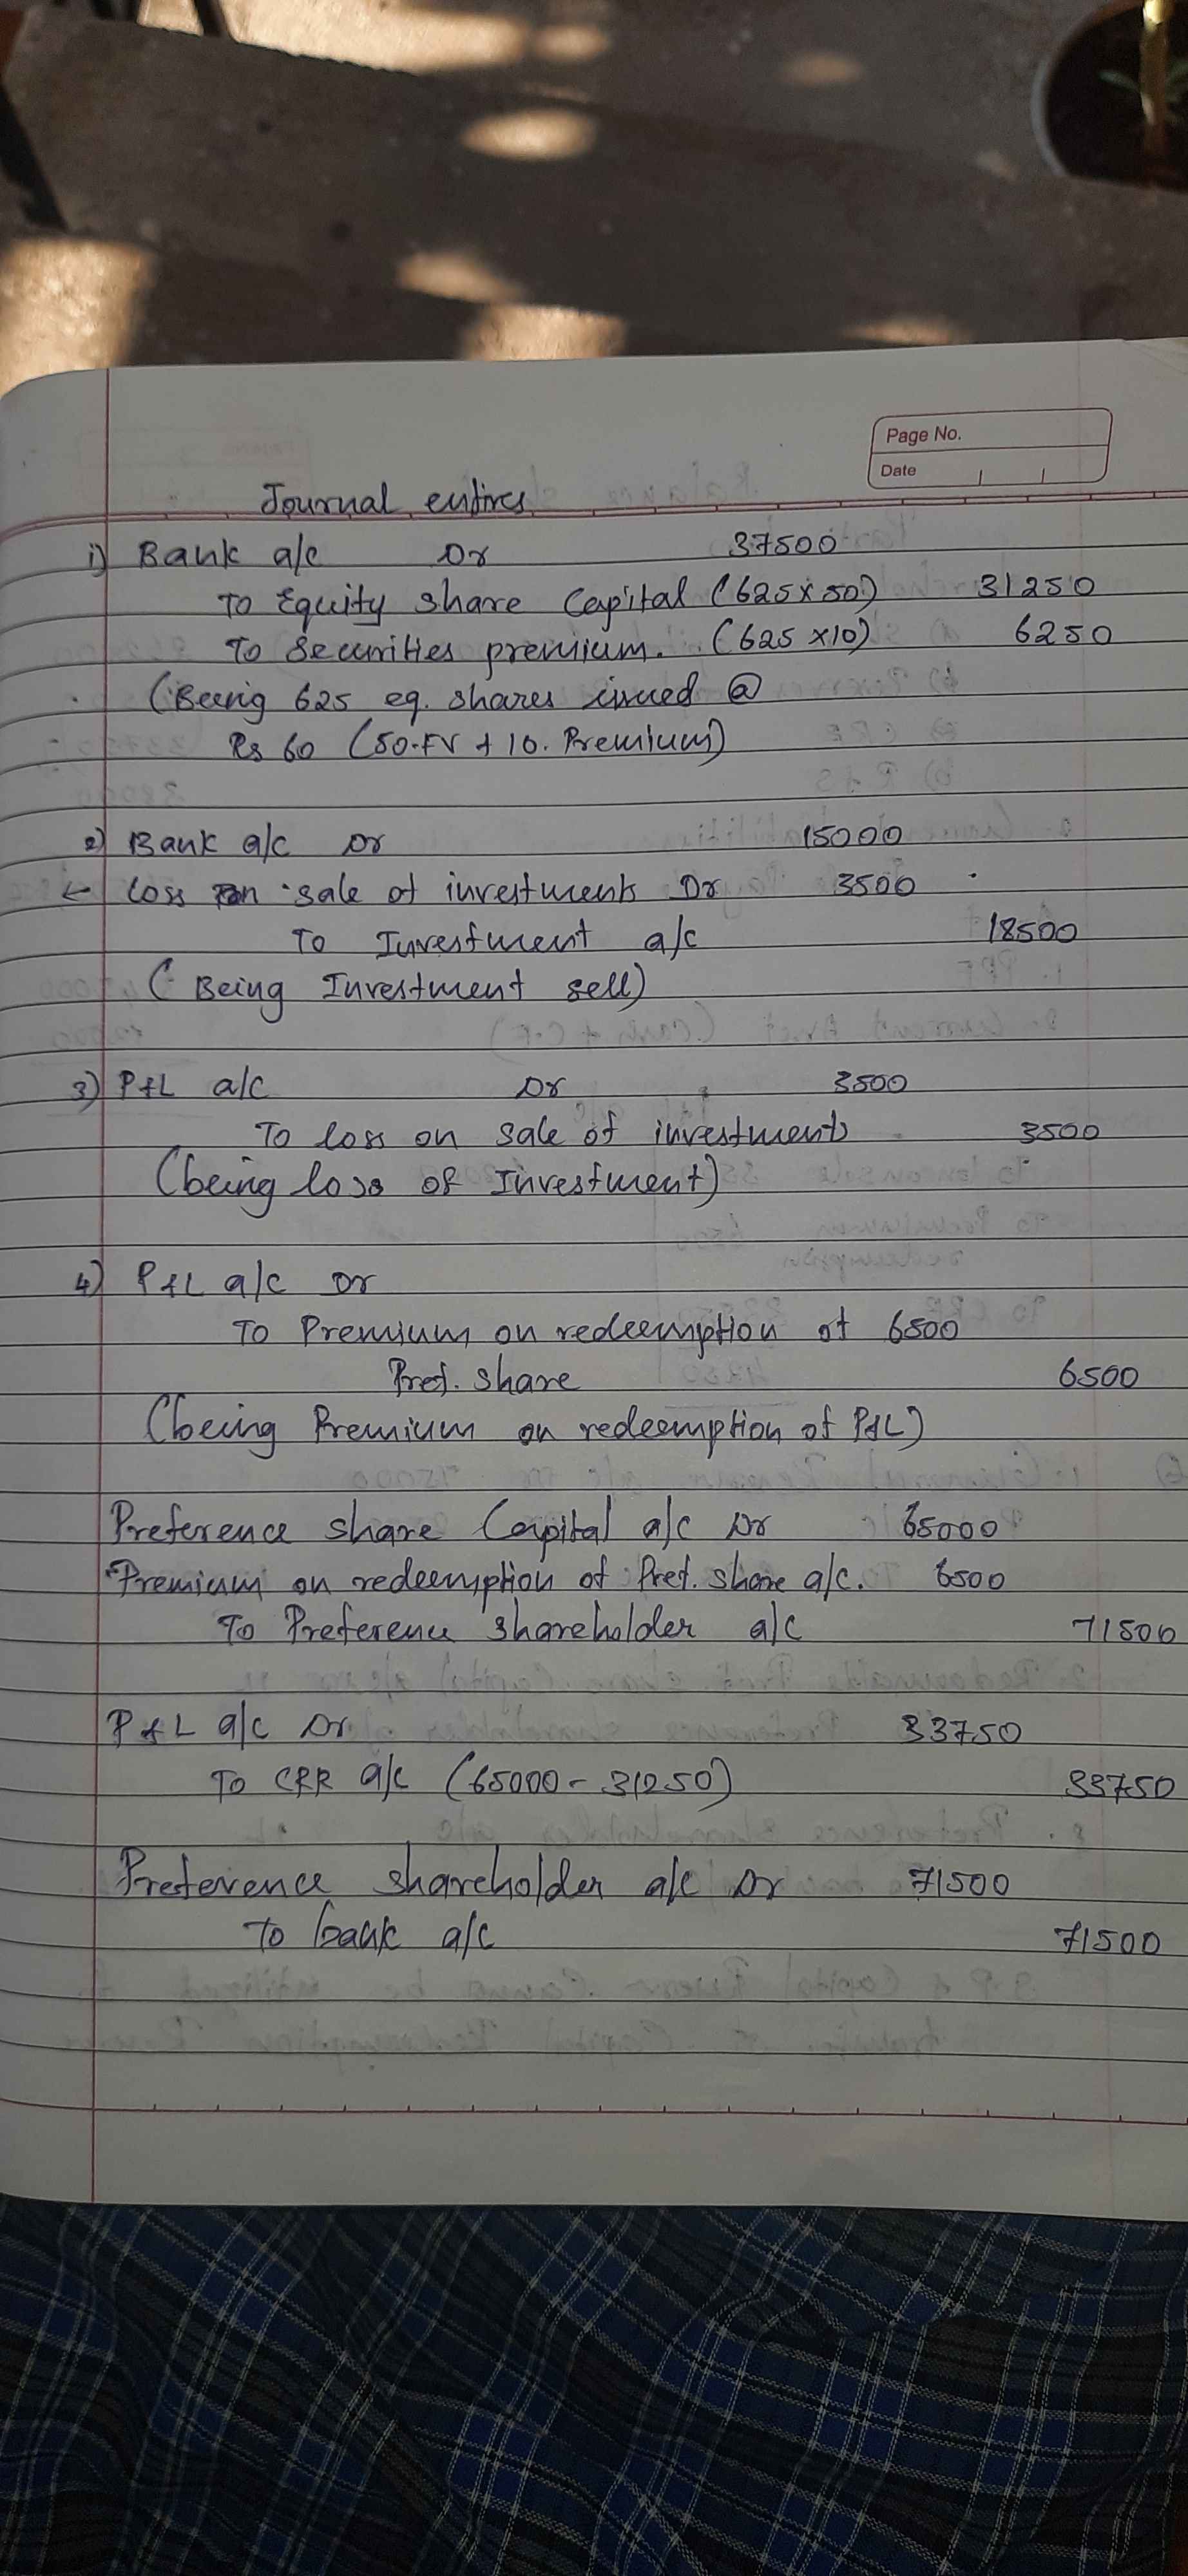 Page No.
Date
Journal entires
1) Bank a/c Dr 37500
To Equity share Capital (625x50) 31250
To Securities premium. (625x10) 6250
(Being 625 eq. shares issued @
Rs 60 (50.FV + 10. Premium)
2) Bank a/c Dr 15000
loss on sale of investments Dr 3500
To Investment a/c 18500
(Being Investment sell)
3) P&L a/c Dr 3500
To loss on sale of investments 3500
(being loss of Investment)
4) P&L a/c Dr
To Premium on redeemption of 6500
Pref. share 6500
(being Premium on redeemption of P&L)
Preference share Capital a/c Dr 65000
Premium on redeemption of Pref. share a/c. 6500
To Preference shareholder a/c 71500
P&L a/c Dr 33750
To CRR a/c (65000-31250) 33750
Preference shareholder a/c Dr 71500
To bank a/c 71500